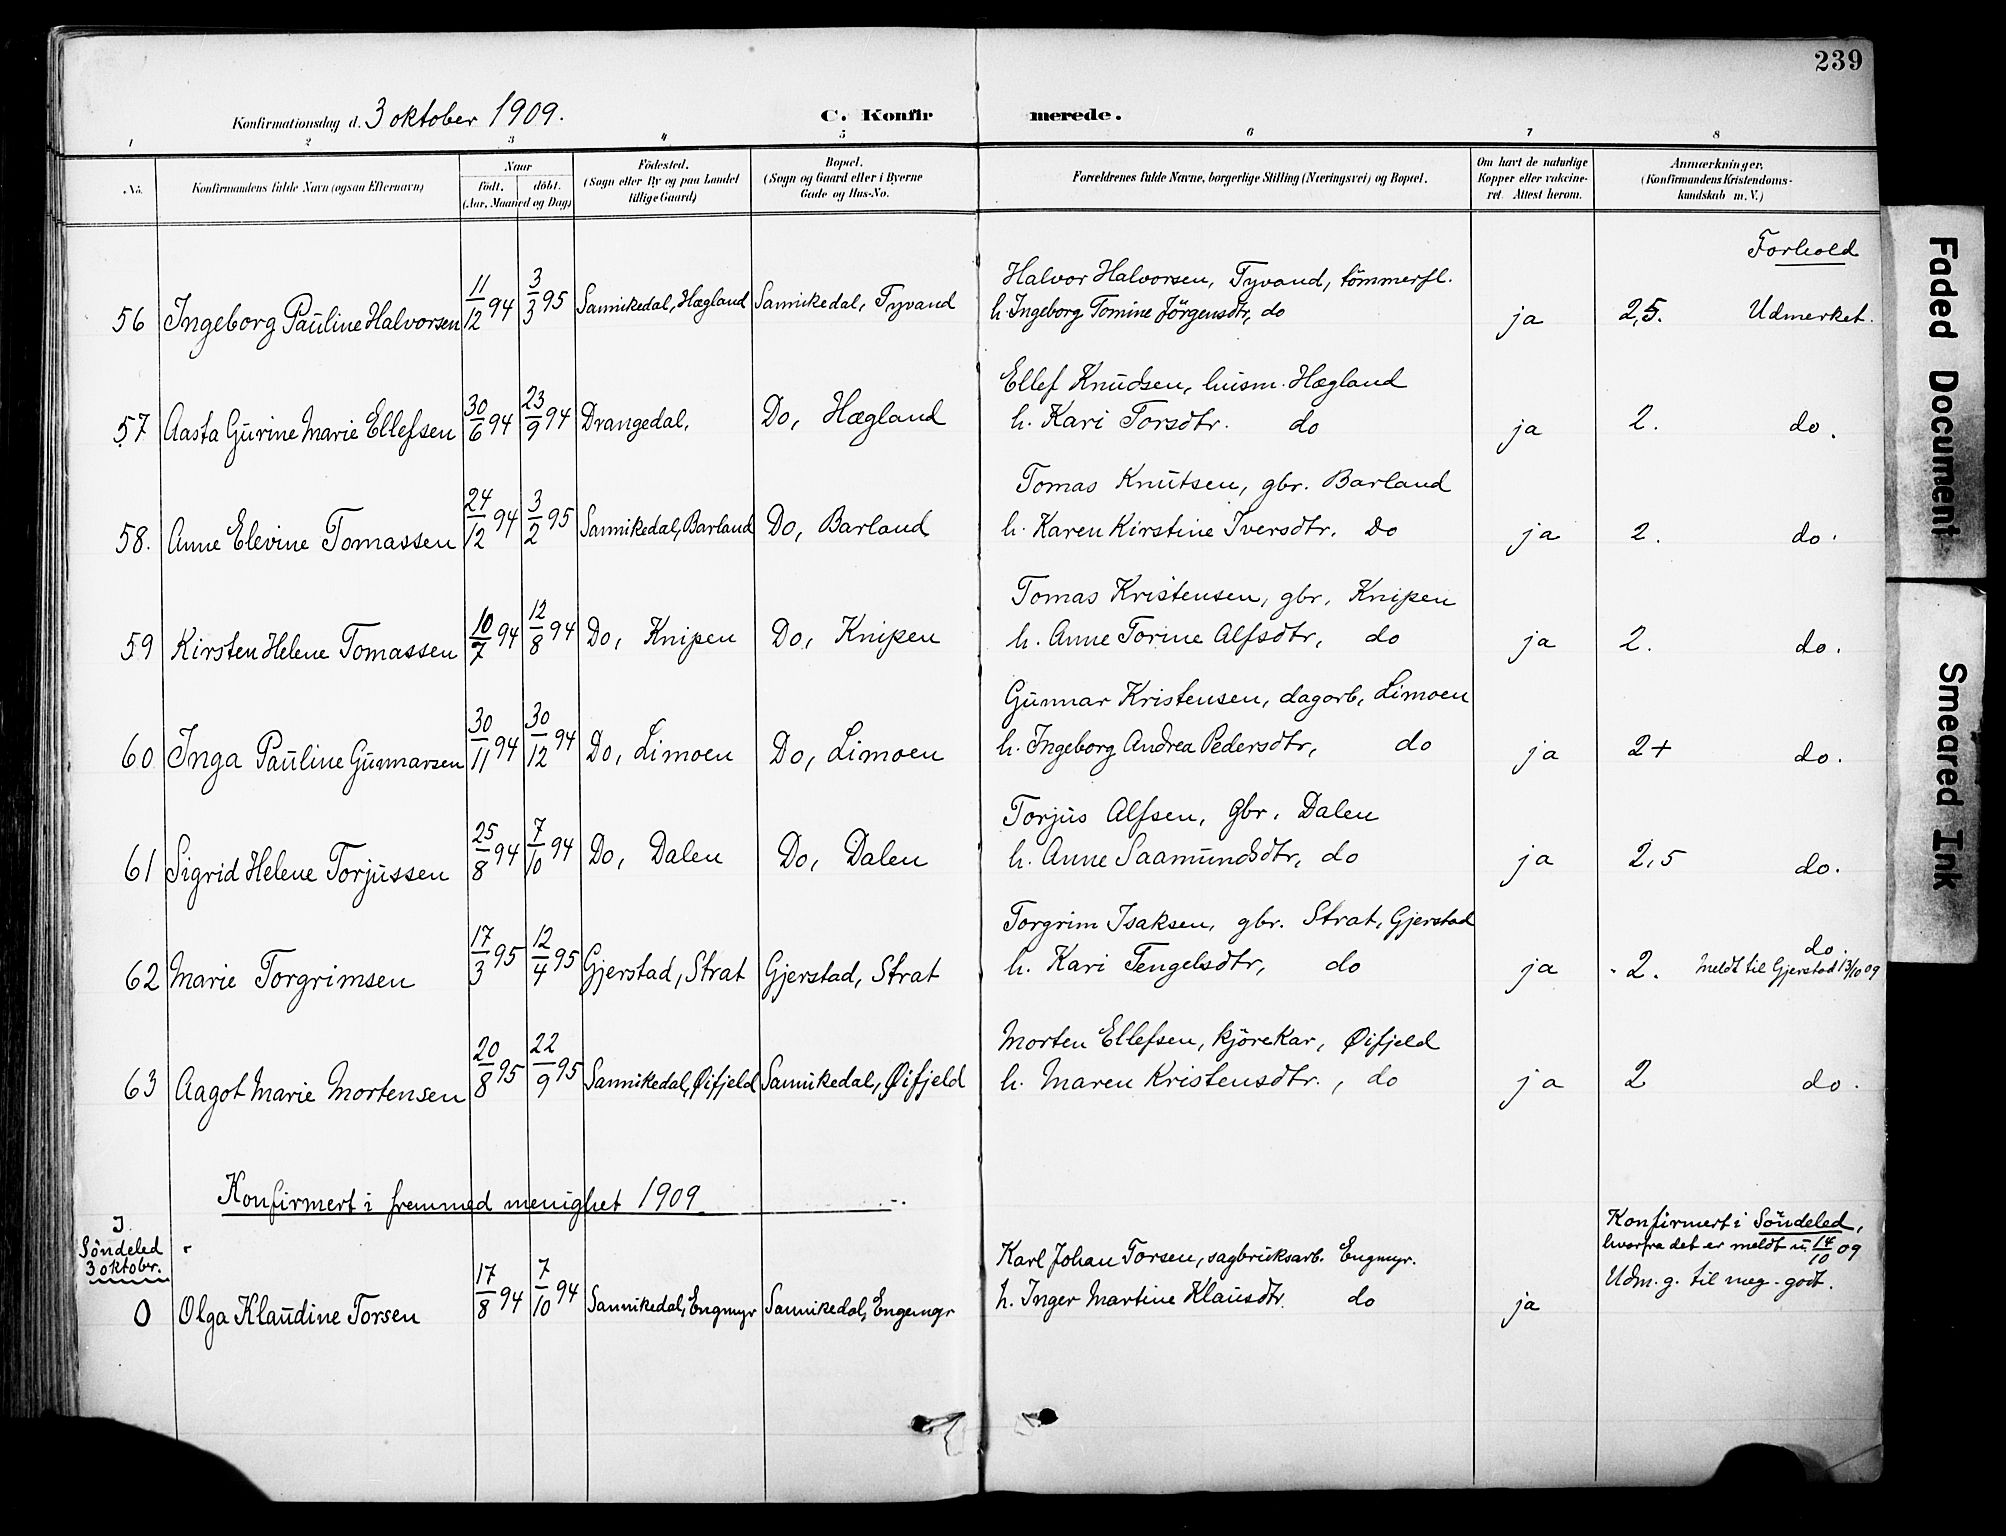 239
Konfirmationsdag d. 3 oktober 1909. C. Konfirmerede.
1 2 3 4 5 6 7 8
No. Konfirmandens fulde Navn (ogsaa Efternavn) Naar födt. döbt. (Aar, Maaned og Dag) Födested. (Sogn eller By og paa Landet tillige Gaard) Bopæl. (Sogn og Gaard eller i Byerne Gade og Hus-No. Forældrenes fulde Navne, borgerlige Stilling (Næringsvei) og Bopæl. Om havt de naturlige Kopper eller vakcineret. Attest herom. Anmærkninger. (Konfirmandens Kristendomskundskab m. V.)
Forhold
Halvor Halvorsen, Tyvand, tömmerfl.
56 Ingeborg Pauline Halvorsen 11/12 94 3/3 95 Sannikedal, Hægland Sannikedal, Tyvand h. Ingeborg Tomine Jörgensdtr, do ja 2,5. Udmerket.
Ellef Knudsen, husm. Hægland
57 Aasta Gurine Marie Ellefsen 30/6 94 23/9 94 Drangedal, Do, Hægland h. Kari Torsdtr. do ja 2. do.
Tomas Knutsen, gbr. Barland
58. Anne Elevine Tomassen 24/12 94 3/2 95 Sannikedal, Barland Do, Barland h. Karen Kirstine Iversdtr. Do ja 2. do.
Tomas Kristensen, gbr, Knipen
59 Kirsten Helene Tomassen 10/7 94 12/8 94 Do, Knipen Do, Knipen h. Anne Torine Alfsdtr, do ja 2. do.
Gunnar Kristensen, dagarb, Limoen
60 Inga Pauline Gunnarsen 30/11 94 30/12 94 Do, Limoen Do, Limoen h. Ingeborg Andrea Pedersdtr, do ja 2+ do.
Torjus Alfsen, Gbr. Dalen
61 Sigrid Helene Torjussen 25/8 94 7/10 94 Do, Dalen Do, Dalen h. Anne Saamundsdtr, do ja 2,5 do.
Torgrim Isaksen, gbr. Strat, Gjerstad
62 Marie Torgrimsen 17/3 95 12/4 95 Gjerstad, Strat Gjerstad, Strat h. Kari Tengelsdtr, do ja 2. do.
Meldt til Gjerstad 13/10 09
Morten Ellefsen, kjörekar, Øifjeld
63 Aagot Marie Mortensen 20/8 95 22/9 95 Sannikedal, Øifjeld Sannikedal, Øifjeld h. Maren Kristensdtr., do ja 2 do.
Konfirmert i fremmed menighet 1909
I
Söndeled
3 oktober.
Konfirmert i Söndeled,
hvorfra det er meldt u. 14/10 09
Udm. g. til meg. godt.
Karl Johan Torsen, sagbruksarb. Engmyr.
0 Olga Klaudine Torsen 17/8 94 7/10 94 Sannikedal, Engmyr Sannikedal, Engemyr h. Inger Martine Klausdtr. do ja
Faded Document
Smeared Ink